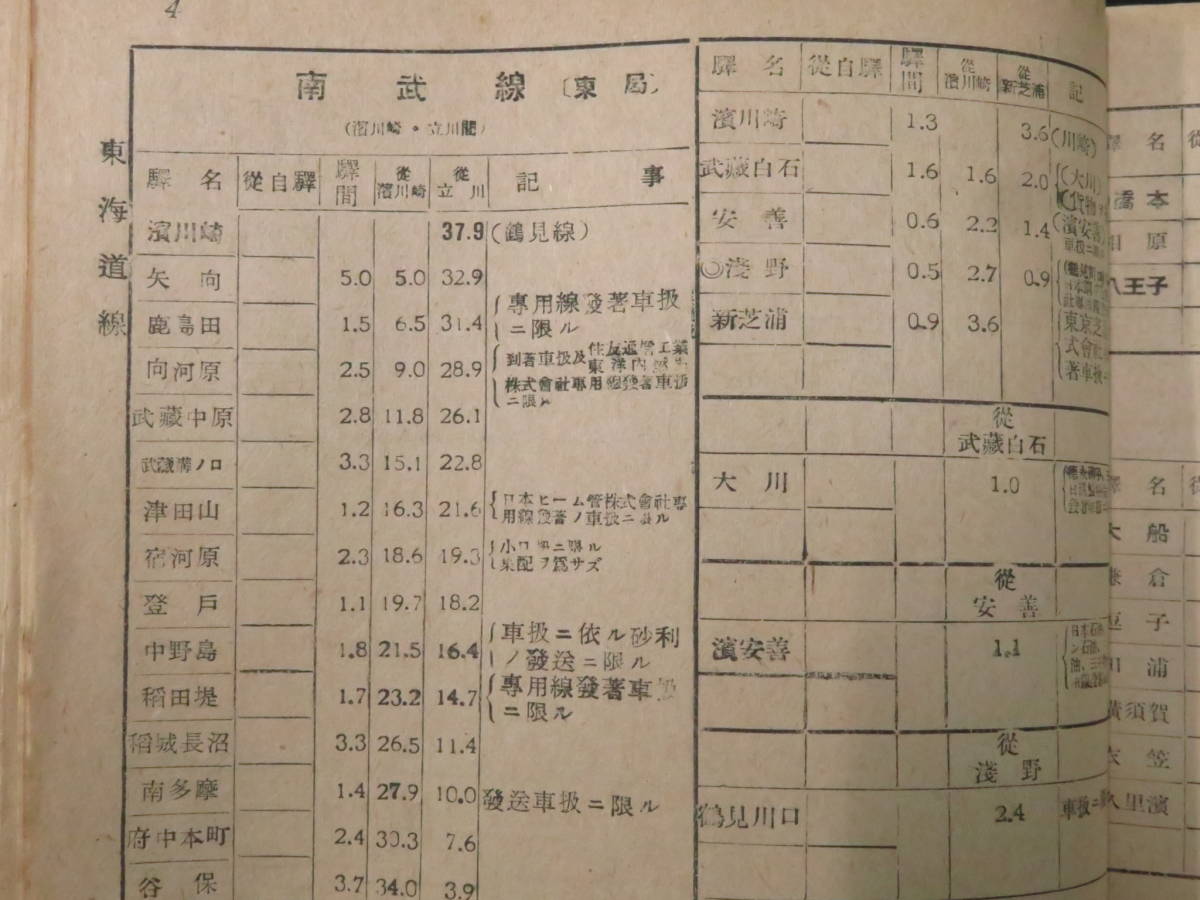 4
東海道線
南武線〔東局〕
(濱川崎・立川間)
驛名 從自驛 驛間 從濱川崎 從立川 記事
濱川崎 37.9 (鶴見線)
矢向 5.0 5.0 32.9
鹿島田 1.5 6.5 31.4 專用線發著車扱ニ限ル
向河原 2.5 9.0 28.9 到著車扱及
株式會社專用線發著車扱ニ限ル
武藏中原 2.8 11.8 26.1
武藏溝ノ口 3.3 15.1 22.8
津田山 1.2 16.3 21.6 日本ヒーム管株式會社專用線發著ノ車扱ニ限ル
宿河原 2.3 18.6 19.3 小口扱ニ限ル
集配ヲ爲サズ
登戶 1.1 19.7 18.2
中野島 1.8 21.5 16.4 車扱ニ依ル砂利ノ發送ニ限ル
稻田堤 1.7 23.2 14.7 專用線發著車扱ニ限ル
稻城長沼 3.3 26.5 11.4
南多摩 1.4 27.9 10.0 發送車扱ニ限ル
府中本町 2.4 30.3 7.6
谷保 3.7 34.0 3.9
驛名 從自驛 驛間 從濱川崎 從新芝浦 記
濱川崎 1.3 3.6 (川崎)
武藏白石 1.6 1.6 2.0 (大川)
(貨物
安善 0.6 2.2 1.4 (濱安善)
◎淺野 0.5 2.7 0.9
新芝浦 0.9 3.6 東京芝
式會社
著車扱ニ
從武藏白石
大川 1.0
從安善
濱安善 1.1
從淺野
鶴見川口 2.4 車扱ニ
驛名
橋本
相原
八王子
驛名
大船
鎌倉
逗子
田浦
橫須賀
衣笠
久里濱